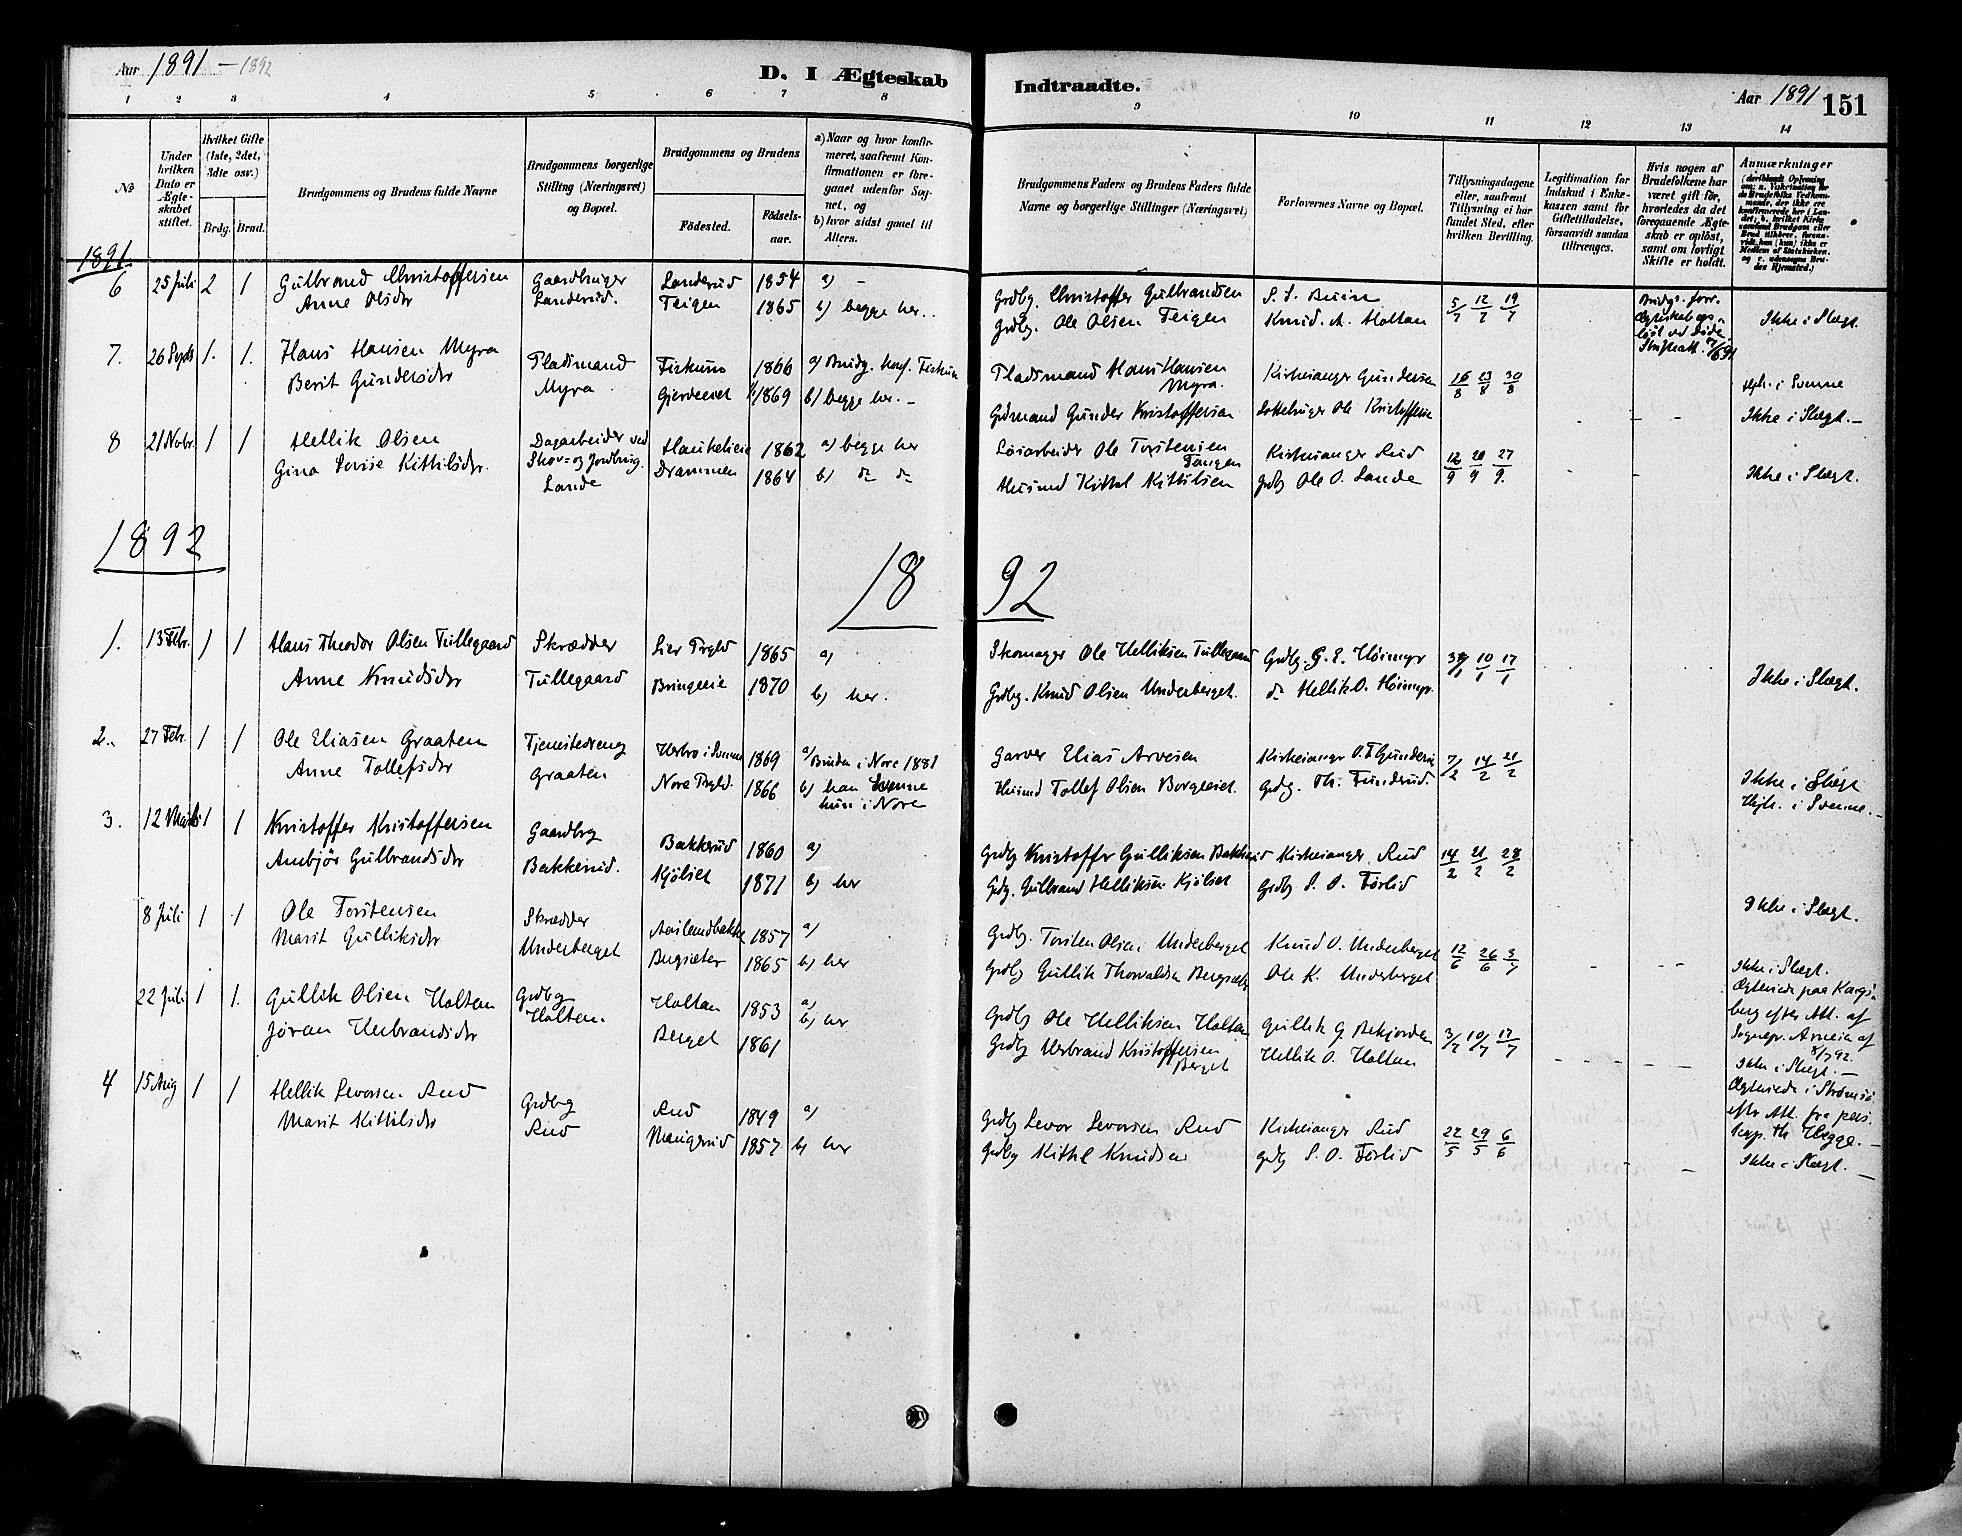 Aar 1891 – 1892
D. I Ægteskab Indtraadte.
Aar 1891 151
1 2 3 4 5 6 7 8 9 10 11 12 13 14
No
Under hvilken Dato er Ægteskabet stiftet.
Hvilket Gifte (1ste, 2det, 3dte osv.)
Brdg. Brud.
Brudgommens og Brudens fulde Navne
Brudgommens borgerlige Stilling (Næringsvei) og Bopæl.
Brudgommens og Brudens
Födested. Födsels-aar.
a) Naar og hvor konfirmeret, saafremt Konfirmationen er foregaaet udenfor Sognet, og
b) hvor sidst gaaet til Alters.
Brudgommens Faders og Brudens Faders fulde Navne og borgerlige Stillinger (Næringsvei)
Forlovernes Navne og Bopæl.
Tillysningsdagene eller, saafremt Tillysning ei har fundet Sted, efter hvilken Bevilling.
Legitimation for Indskud i Enkekassen samt for Giftetilladelse, forsaavidt saadan tiltrænges.
Hvis nogen af Brudefolkene har været gift för, hvorledes da det foregaaende Ægteskab er oplöst, samt om lovligt Skifte er holdt.
Anmærkninger
1891
6 25 Juli 2 1 Gulbrand Christoffersen Gaardbruger Landerud 1854 a) –
Anne Olsdtr Landerud. Teigen 1865 b) begge her.
Grdbg. Christoffer Gulbrandsen 5/7 12/7 19/7
Grdbg. Ole Olsen Teigen Knud. A. Holtan Ikke i Slægt.
7. 26 Septb 1. 1. Hans Hansen Myra Pladsmand Fiskum 1866 a) Brudg. konf. Fiskum
Berit Gundersdtr Myra 1869 b) begge her. –
Pladsmand Hans Hansen Myra. Kirkesanger Gundersen 16/8 23/8 30/8
Grdmand Gunder Kristoffersen Ole Kristoffersen Ikke i Slægt. –
8 21 Nobr. 1 1 Hellik Olsen Dagarbeider ved 1862 a) begge her
Gina Kittilsdtr. Skov- og Jordbrug. Drammen 1864 b) do do
Lande
Ole Torstensen Tangen Kirkesanger Rud 12/9 20/9 27/9.
Husmd Kittel Kittilsen grdb Ole O. Lande Ikke i Slægt.
1892
18 92
1. 13 Febr. 1 1 Hans Theodor Olsen Tullegaard Skrædder Lier Prgld 1865 a)
Anne Knudsdtr Tullegaard 1870 b) her.
Skomager Ole Helliksen Tullegaard Grdbg. G. E. Höimyr 10/1 17/1
Grdbg. Knud Olsen Underberget. do Hellik O. Höimyr. Ikke i Slægt.
2. 27 Febr. 1 1 Ole Eliasen Graaten Tjenestedreng 1869 a) Bruden i Nore 1881
Anne Tollefsdtr Graaten Nore Prgld. 1866 b) han Svenne hun i Nore
Garver Elias Arvesen Kirkesanger 7/2 14/2 21/2
Husmd Tollef Olsen Borgeeiet. grdbg. Th. Funderud. Ikke i Slægt
Hjh. i Svenne. –
3. 12 Marts 1 1 Kristoffer Kristoffersen Gaardbrg Bakkerud 1860 a)
Ambjör Gulbrandsdtr Bakkerud. Kjölset 1871 b) her
Grdbg Kristoffer Gulliksen Bakkerud Kirkesanger Rud 14/2 21/2 28/2
Grdg. Gulbrand Helliksen Kjölset grdbg S. O. Förlid
Ikke i Slægt.
8 Juli 1 1 Ole Torstensen Skrædder 1857 a)
Marit Gulliksdtr Underberget Bergsæter 1865 b) her
Grdbg. Torsten Olsen Underberget Knud O. Underberget 12/6 26/6 3/7
Grdbg Gullik Thorvaldsen Ole K. Underberget
Ikke i Slægt.
22 Juli 1 1. Gullik Olsen Holtan Grdbg Holtan 1853 a)
Jöran Herbrandsdtr Holtan. Berget 1861 b) her
Grdbg Ole Helliksen Holtan Gullik G. 3/7 10/7 17/7
Grdbg Herbrand Kristoffersen Berget Hellik O. Holtan
Ægteviede paa Kongsberg efter Att. af Sognepr. 8/7 92.
Ikke i Slægt. –
4 15 Aug 1 1 Hellik Levorsen Rud Grdbg Rud 1849 a)
Marit Kittilsdtr Rud 1857 b) her
Grdbg Levor Levorsen Rud Kirkesanger Rud 22/5 29/5 6/6
Grdbg Kittil Knudsen grdbg S. O. Förlid
Ægteviede i Strömsö efter Att. fra pers. kap. Th. Hegge. –
Ikke i Slægt. –